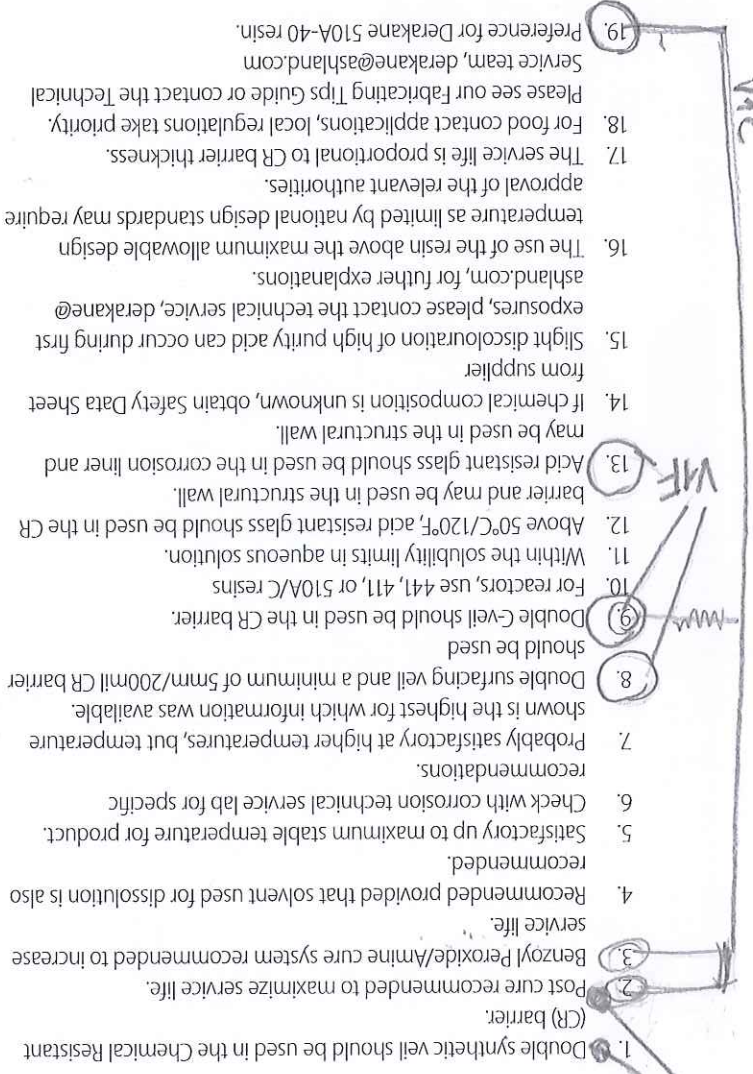 1. Double synthetic veil should be used in the Chemical Resistant
(CR) barrier.
2. Post cure recommended to maximize service life.
3. Benzoyl Peroxide/Amine cure system recommended to increase
service life.
4. Recommended provided that solvent used for dissolution is also
recommended.
5. Satisfactory up to maximum stable temperature for product.
6. Check with corrosion technical service lab for specific
recommendations.
7. Probably satisfactory at higher temperatures, but temperature
shown is the highest for which information was available.
8. Double surfacing veil and a minimum of 5mm/200mil CR barrier
should be used
9. Double C-veil should be used in the CR barrier.
10. For reactors, use 441, 411, or 510A/C resins
11. Within the solubility limits in aqueous solution.
12. Above 50°C/120°F, acid resistant glass should be used in the CR
barrier and may be used in the structural wall.
13. Acid resistant glass should be used in the corrosion liner and
may be used in the structural wall.
14. If chemical composition is unknown, obtain Safety Data Sheet
from supplier
15. Slight discolouration of high purity acid can occur during first
exposures, please contact the technical service, derakane@
ashland.com, for futher explanations.
16. The use of the resin above the maximum allowable design
temperature as limited by national design standards may require
approval of the relevant authorities.
17. The service life is proportional to CR barrier thickness.
18. For food contact applications, local regulations take priority.
Please see our Fabricating Tips Guide or contact the Technical
Service team, derakane@ashland.com
19. Preference for Derakane 510A-40 resin.
V1F
V1C